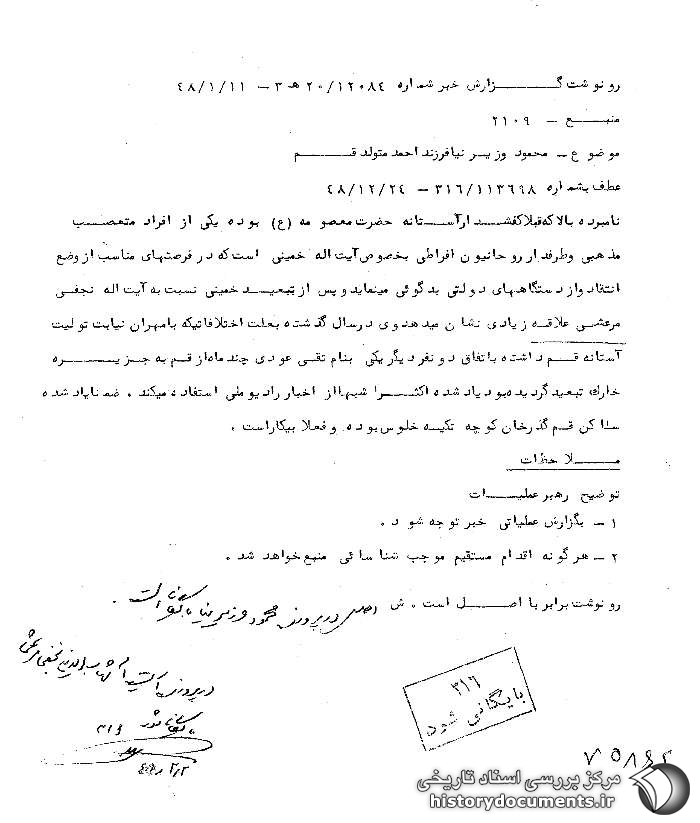 رونوشت گزارش خبر شماره ۲۰/۱۲۰۸۴ ه‍ ۳ – ۴۸/۱/۱۱
منبع – ۲۱۰۹
موضوع – محمود وزیر نیا فرزند احمد متولد قم
عطف بشماره ۳۱۶/۱۱۳۶۹۸ – ۴۸/۱۲/۲۴
نامبرده بالا که قبلا کفشدار آستانه حضرت معصومه (ع) بوده یکی از افراد متعصب
مذهبی و طرفدار روحانیون افراطی بخصوص آیت اله خمینی است که در فرصتهای مناسب از وضع
انتقاد و از دستگاههای دولتی بدگوئی مینماید و پس از تبعید خمینی نسبت به آیت اله نجفی
مرعشی علاقه زیادی نشان میدهد وی در سال گذشته بعلت اختلافاتیکه با مهران نیابت تولیت
آستانه قم داشته با تفاق دو نفر دیگر یکی بنام تقی عودی چند ماه از قم به جزیره
خارک تبعید گردیده بود یاد شده اکثرا شبها از اخبار رادیو ملی استفاده میکند . ضمنا یاد شده
ساکن قم گذرخان کوچه تکیه خلوس بوده و فعلا بیکار است .
ملاحظات
توضیح رهبر عملیات
۱ – بگزارش عملیاتی خبر توجه شود .
۲ – هرگونه اقدام مستقیم موجب شناسائی منبع خواهد شد .
رونوشت برابر با اصل است . ش اصل در پرونده محمود وزیر نیا بایگانی است .
در پرونده آیت اله شهاب الدین نجفی مرعشی
بایگانی شود
۳۱۶
۳۱۶
بایگانی شود
مرکز بررسی اسناد تاریخی
historydocuments.ir